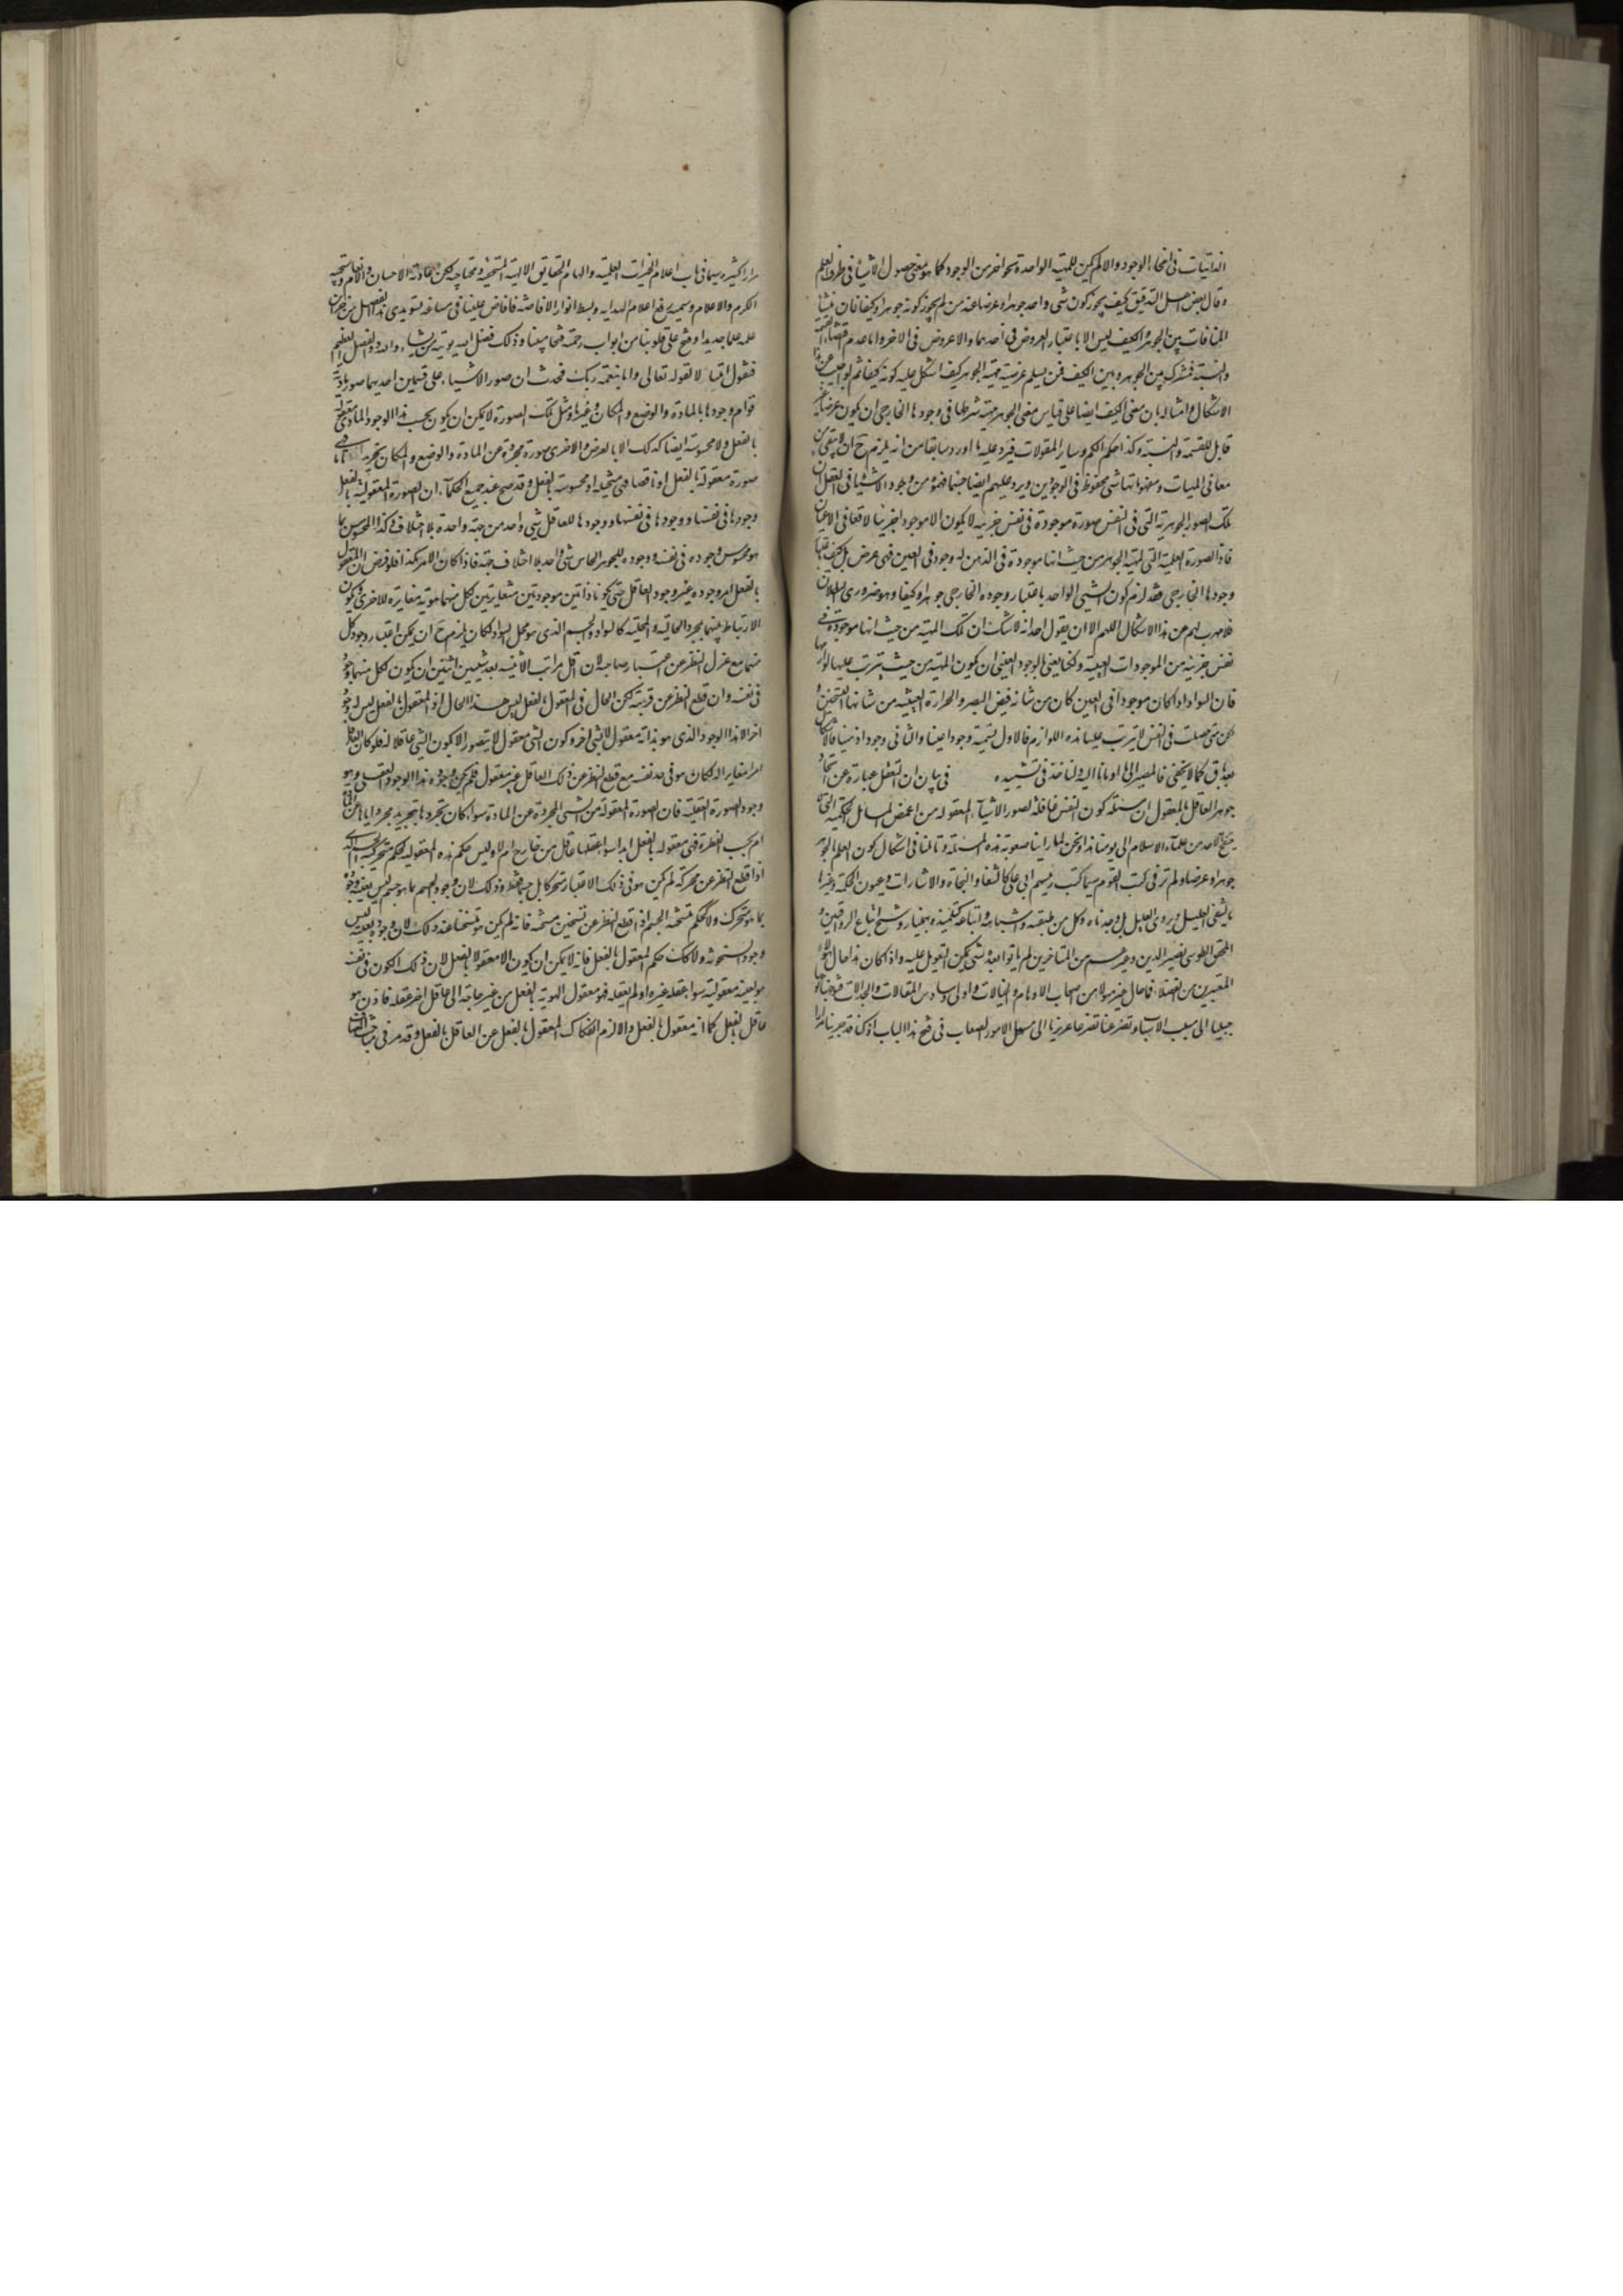 الذاتيات في انحاء الوجود والا لم يكن للمهية الواحدة نحو اخر من الوجود كما هو معنى حصول الاشياء في ظرف العلم
وقال بعض اهل التدقيق كيف يجوز كون شي واحد جوهرا وعرضا عند من لم يجوز كونه جوهرا وكيفا فان منشأ
المنافات بين الجوهر والكيف ليس الا باعتبار العروض في احدهما واللاعروض في الاخر واما عدم اقتضاء القسمة
والنسبة فمشترك بين الجوهر وبين الكيف فمن يسلم عرضية مهية الجوهر كيف اشكل عليه كونه كيفا ثم لو اجيب عن هذا
الاشكال وامثاله بان معنى الكيف ايضا على قياس معنى الجوهر مهية شرطها في وجودها الخارجي ان يكون عرضا غير
قابل للقسمة والنسبة وكذا حكم الكم وساير المقولات فيرد عليه ما اورد سابقا من انه يلزم ح ان لا يبقى من
معاني المهيات ومفهوماتها شي محفوظ في الوجودين ويرد عليهم ايضا حينما فهموه من وجود الاشياء في العقل ان
تلك الصور الجوهرية التي في النفس صورة موجودة في نفس جزئية لا يكون الا موجودا جزئيا لا قعا في الاعيان
فاذا الصورة العلمية التي لمهية الجوهر من حيث انها موجودة في الذهن له وجود في العين فهي عرض بل كيف بحسب
وجودها الخارجي فقد لزم كون الشيء الواحد باعتبار وجوده الخارجي جوهرا وكيفا وهو ضروري البطلان
فلا مهرب لهم عن هذا الاشكال اللهم الا ان يقول احد انه لا شك ان تلك المهية من حيث انها موجودة في
نفس جزئية من الموجودات العينية ولكنا يعني بالوجود العيني ان يكون المهية من حيث يترتب عليها لوازمها
فان السواد اذا كان موجودا في العين كان من شانه قبض البصر والحرارة العينية من شانها التسخين
لكن متى حصلت في النفس لا يترتب عليها هذه اللوازم فالاول يسمى وجودا عينا والثاني وجودا ذهنيا فالاشكال
بعد باق كما لا يخفى فالمصير الى ما اومانا اليه ولناخذ في تشييده في بيان ان التعقل عبارة عن اتحاد
جوهر العاقل بالمعقول ان مسئلة كون النفس عاقلة لصور الاشياء المعقولة من اغمض المسائل الحكمية التي لم
ينقح لاحد من علماء الاسلام الى يومنا هذا ونحن لما راينا صعوبة هذه المسئلة وتاملنا في اشكال كون العلم بالجوهر
جوهرا وعرضا ولم نر في كتب القوم سيما كتب رئيسهم ابي علي كالشفا والنجاة والاشارات وعيون الحكمة وغيرها
ما يشفي العليل ويروي الغليل بل وجدناه وكل من طبقته واشباهه واتباعه كتلميذه بهمنيار وشيخ اتباع الرواقين و
المحقق الطوسي نصير الدين وغيرهم من المتاخرين لم ياتوا بعده بشي يمكن التعويل عليه واذا كان هذا حال هؤلاء
المعتبرين من الفضلاء فما حال غير هؤلاء من اصحاب الاوهام والخيالات واولى وساوس المقالات والجدالات فتوجهنا توجها
جبليا الى مسبب الاسباب وتضرعنا تضرعا غريزيا الى مسهل الامور الصعاب في فتح هذا الباب اذ كنا قد جربنا مرارا
مرارا كثيرة سيما في باب اعلام الخيرات العلمية والهام الحقايق الالهية لمستحقيه ومحتاجيه لكن عادته الاحسان والانعام وسجيته
الكرم والاعلام وشيمته رفع اعلام الهداية وبسط انوار الافاضة فافاض علينا في ساعة تسويدي هذا الفصل من خزائن
علمه علما جديدا وفتح على قلوبنا من ابواب رحمته فتحا مبينا وذلك فضل الله يوتيه من يشاء والله ذو الفضل العظيم
فنقول امتثالا لقوله تعالى واما بنعمة ربك فحدث ان صور الاشياء على قسمين احديهما صورة مادية
قوام وجودها بالمادة والوضع والمكان وغيرها ومثل تلك الصورة لا يمكن ان يكون بحسب هذا الوجود المادي معقولة
بالفعل ولا محسوسة ايضا كذلك الا بالعرض والاخرى صورة مجردة عن المادة والوضع والمكان تجريدا اما تاما فهي
صورة معقولة بالفعل او ناقصا فهي متخيلة او محسوسة بالفعل وقد صح عند جميع الحكماء ان الصورة المعقولة بالفعل
وجودها في نفسها ووجودها في نفسها ووجودها للعاقل شي واحد من جهة واحدة بلا اختلاف وكذا المحسوس بما
هو محسوس وجوده في نفسه ووجوده للجوهر الحاس شي واحد بلا اختلاف جهة فاذا كان الامر هكذا فلو فرض ان المعقول
بالفعل امر وجوده غير وجود العاقل حتى يكونا ذاتين موجودتين متغايرتين لكل منهما هوية مغايرة للاخرى ويكون
الارتباط بينهما بمجرد الحالية والمحلية كالسواد والجسم الذي هو محل السواد لكان يلزم ح ان يمكن اعتبار وجود كل
منهما مع عزل النظر عن اعتبار صاحبه لان اقل مراتب الاثنينية بعد شيئين اثنين ان يكون لكل منهما وجود
في نفسه وان قطع النظر عن قرينه لكن الحال في المعقول بالفعل ليس هذا الحال اذ المعقول بالفعل ليس له وجود
اخر الا هذا الوجود الذي هو بذاته معقول لا بشي اخر وكون الشي معقولا لا يتصور الا بكون الشي عاقلا له فلو كان العاقل
امرا مغايرا له لكان هو في حد نفسه مع قطع النظر عن ذلك العاقل غير معقول فلم يكن وجوده هذا الوجود العقلي وهو
وجود الصورة العقلية فان الصورة المعقولة من الشي المجردة عن المادة سواء كان تجردها بتجريد مجرد اياها عن المادة
ام بحسب الفطرة فهي معقولة بالفعل ابدا سواء عقلها عاقل من خارج ام لا وليس حكم هذه المعقولية كحكم متحركية الجسم الذي
اذا قطع النظر عن محركه لم يكن هو في ذلك الاعتبار متحركا بل جسما فقط وذلك لان وجود الجسم بما هو جسم ليس بعينه وجوده
بما هو متحرك ولا كحكم متسخنية الجسم اذا قطع النظر عن تسخين مسخنه فانه لم يكن متسخنا عند ذلك لان وجوده بعينه ليس
وجود السخونة ولا كذلك حكم المعقول بالفعل فانه لا يمكن ان يكون الا معقولا بالفعل لان ذلك الكون في نفسه
هو بعينه معقوليته سواء عقله غيره او لم يعقله فهو معقول الهوية بالفعل من غير حاجة الى عاقل اخر عقله فاذن هو
عاقل بالفعل كما انه معقول بالفعل والا لزم انفكاك المعقول بالفعل عن العاقل بالفعل وقد مر في مباحث المضاف